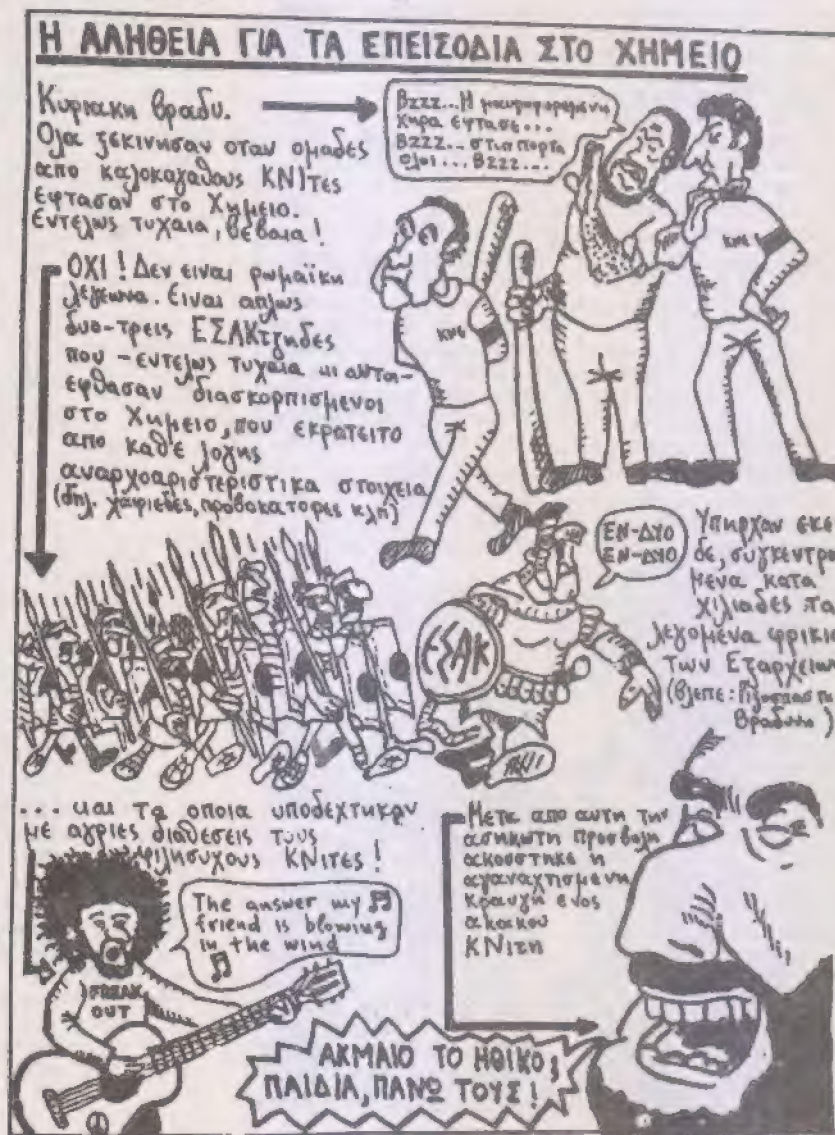 Η ΑΛΗΘΕΙΑ ΓΙΑ ΤΑ ΕΠΕΙΣΟΔΙΑ ΣΤΟ ΧΗΜΕΙΟ
Κυριακη βραδυ.
Ολα ξεκινησαν οταν ομαδες
απο καλοκαγαθους ΚΝΙτες
εφτασαν στο Χημειο.
Εντελως τυχαια, βεβαια!
Βzzz...Η μαυροφορεμενη
χηρα εφτασε...
Βzzz...στισ πορτα
ολοι...Βzzz...
ΚΝΕ
ΚΝΕ
ΟΧΙ! Δεν ειναι ρωμαϊκη
λεγεωνα. Ειναι απλως
δυο-τρεις ΕΣΑΚτζηδες
που -εντελως τυχαια κι αυτοι-
εφθασαν διασκορπισμενοι
στο Χημειο, που εκρατειτο
απο καθε λογης
αναρχοαριστεριστικα στοιχεια
(δηλ. χαφιεδες, προβοκατορες κλπ)
ΕΝ-ΔΥΟ
ΕΝ-ΔΥΟ
ΕΣΑΚ
Υπηρχαν εκε
δε, συγκεντρω
μενα κατα
χιλιαδες τα
λεγομενα φρικια
των Εξαρχειων
(βλεπε: Ριζοσπαστη
Βραδυνη)
...και τα οποια υποδεχτηκαν
με αγριες διαθεσεις τους
φιλησυχους ΚΝιτες!
The answer my
friend is blowing
in the wind
FREAK
OUT
Μετα απο αυτη την
ασηκωτη προσβολη
ακουστηκε η
αγαναχτισμενη
κραυγη ενος
ακακου
ΚΝιτη
ΑΚΜΑΙΟ ΤΟ ΗΘΙΚΟ,
ΠΑΙΔΙΑ, ΠΑΝΩ ΤΟΥΣ!